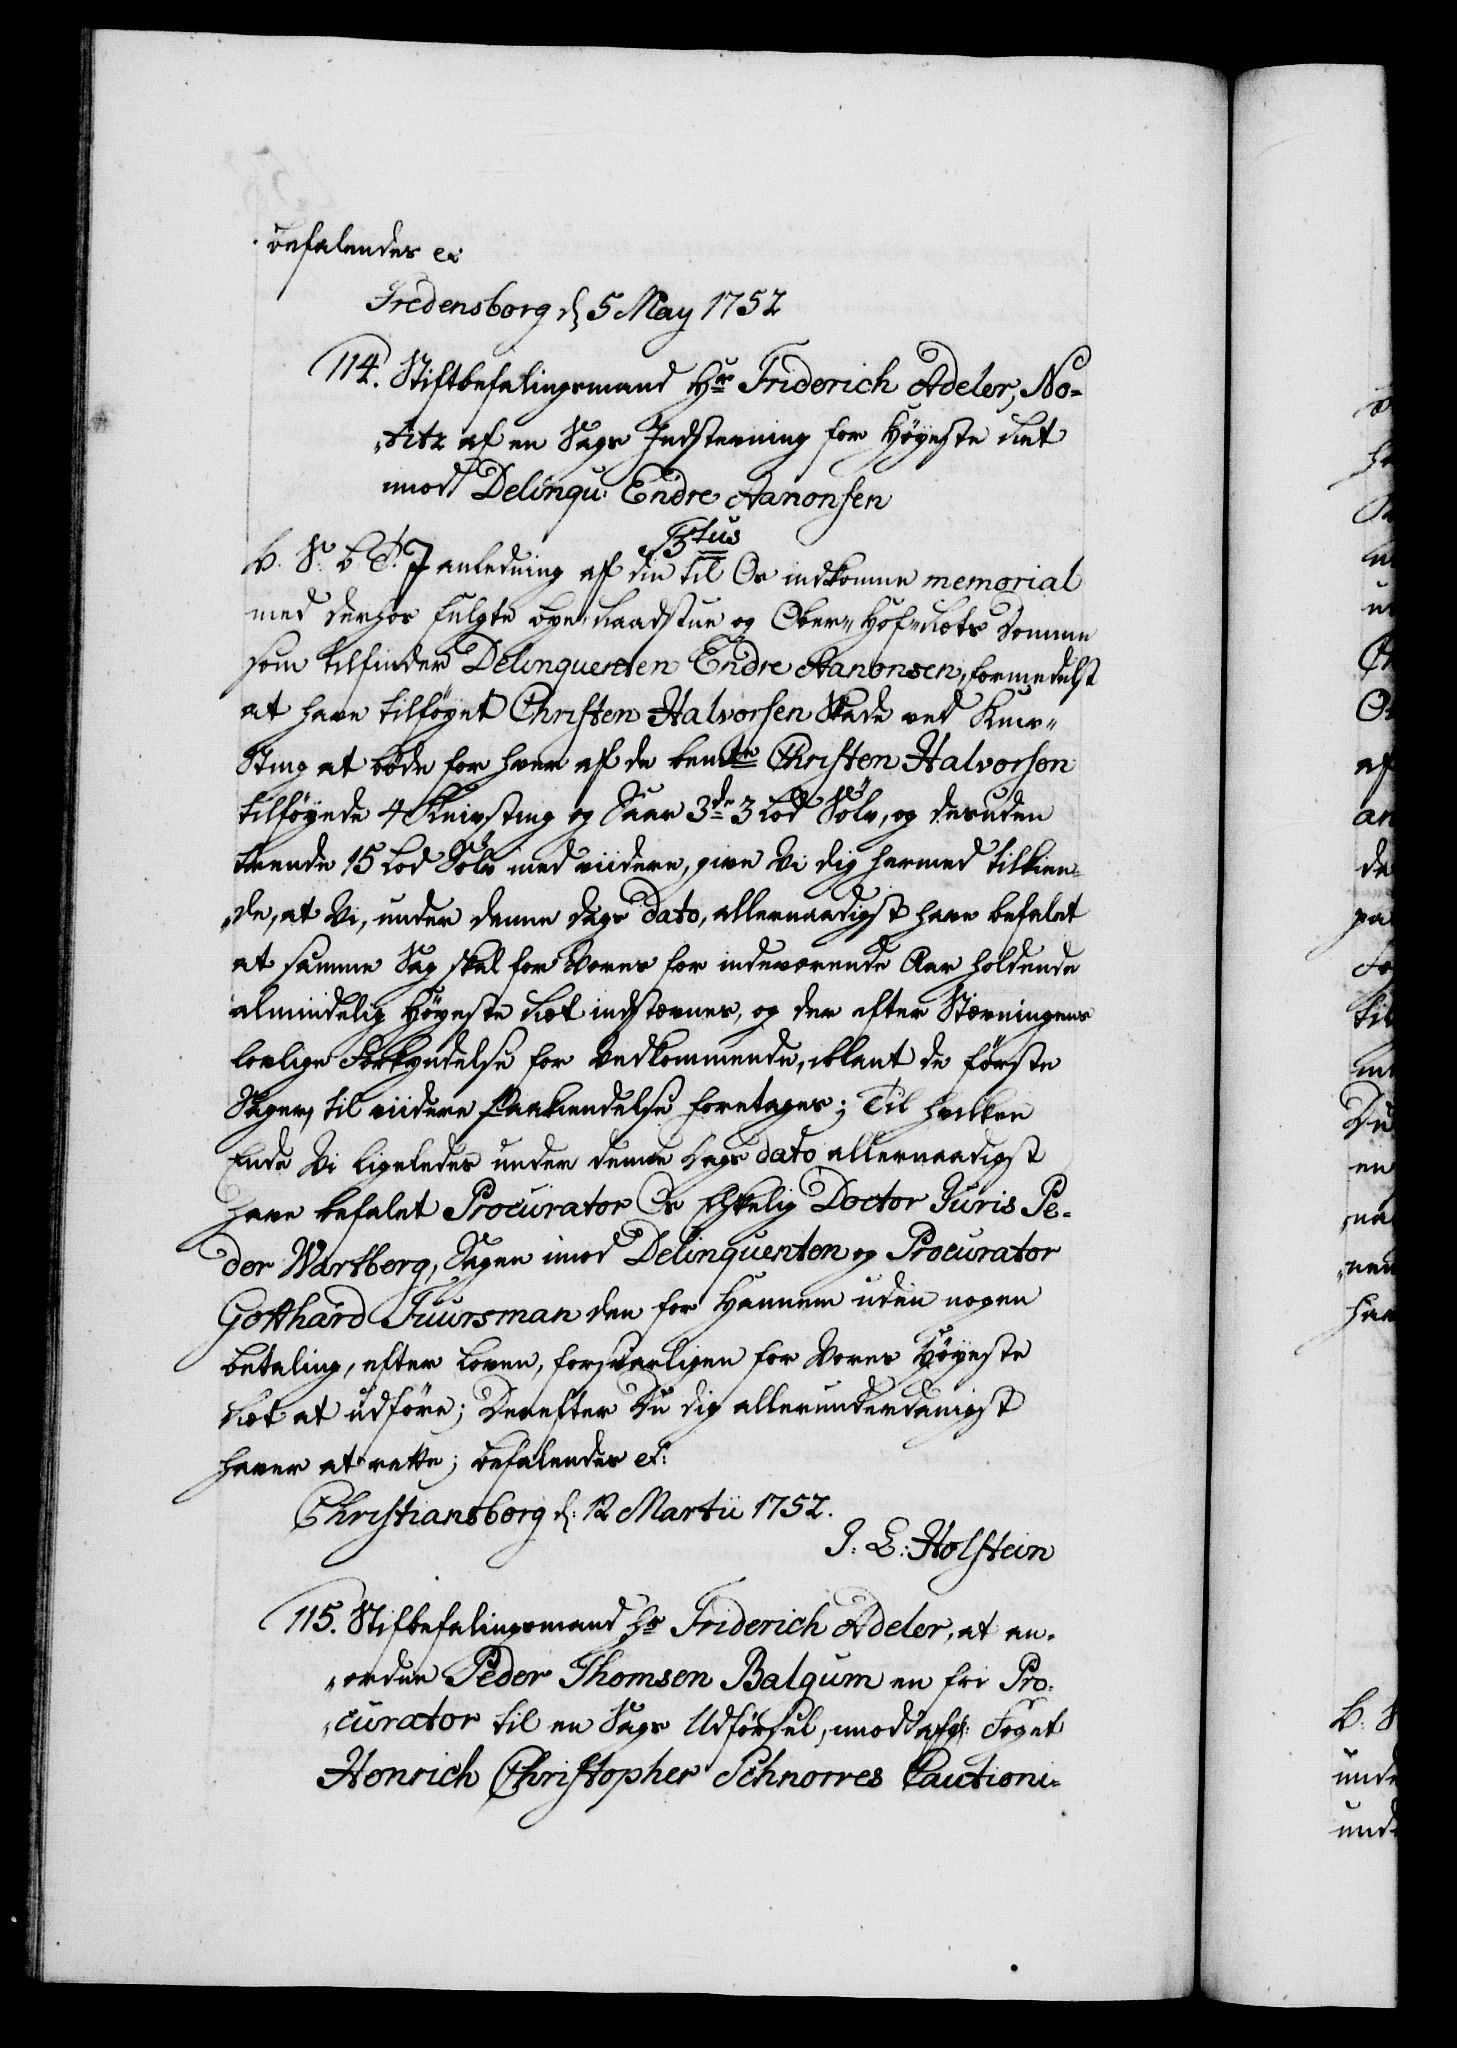 befalendes ec
Fredensborg d 5 May 1752
114. Stiftbefalingsmand Hr Friderich Adeler, No-
titz af en Sags Indstevning for Höyeste Ret
imod Delinqu: Endre Aanonsen
F5tus
V. S: b. G. J anledning af din til Os indkomne memorial
med derhos fulgte bye-Raadstue og Ober-Hof-Rets Domme
som tilfinder Delinquenten Endre Aanonsen, formedelst
at have tilföyet Christen Halvorsen Skade ved Kniv-
Sting at bøde for hver af de bemte Christen Halvorsen
tilföyede 4 Knivsting og Saar 3de 3 Lod Sölv, og desuden
trende 15 Lod Sölv med viidere, give Vi dig hermed tilkien-
de, at Vi, under denne dags dato, allernaadigst have befalet
at samme Sag skal for Vores for indeværende Aar holdende
almindelig Höyeste Ret indstævnes, og der efter Stævningens
lovlige Forkyndelse for Vedkommende, iblant de første
Sager, til viidere Paakiendelse foretages; Til hvilken
Ende Vi ligeledes under denne Dags dato allernaadigst
have befalet Procurator Os Elskelig Doctor Juris Pe-
der Wartberg, Sagen imod Delinquenten og Procurator
Gotthard Fuursman den for Hannem uden nogen
betaling, efter Loven, forsvarligen for Vores Höyeste
Ret at udföre; Derefter Du dig allerunderdanigst
haver at rette; befalendes ec:
Christiansborg d: 12 Martii 1752.
J: L: Holstein
115. Stifbefalingsmand Hr Friderich Adeler, at an-
ordne Peder Thomsen Balgum en fri Pro-
curator til en Sags Udførsel, imod afg: Foget
Henrich Christopher Schnorres Cautioni-